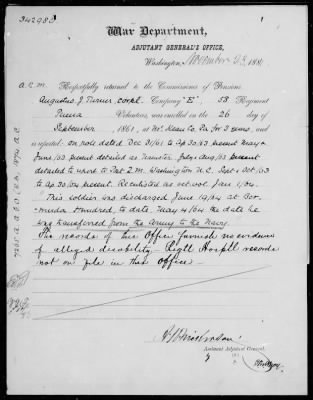 342980
War Department,
ADJUTANT GENERAL'S OFFICE,
Washington, November 23, 188
A.C.M. Respectfully returned to the Commissioner of Pensions.
Augustus J. Turner, corpl. Company "E", 58 Regiment
Penna Volunteers, was enrolled on the 26 day
of September, 1861, at McKean Co. Pa. for 3 years, and
reported: on roll dated Dec 31/61 to Ap 30/63 present May &
June/63 present detailed as Teamster July & Aug/63 present
detailed to report to Washington N.C. Sept & Oct/63
to Ap 30/64 present. Reenlisted as vet vol Jan 1/64.
This soldier was discharged June 19/64 at Ber-
muda Hundred, to date May 4/64 the date he
was transferred from the Army to the Navy.
The records of this Office furnish no evidence
of alleged disability. Regtl Hospll records
not on file in this office.
Assistant Adjutant General.